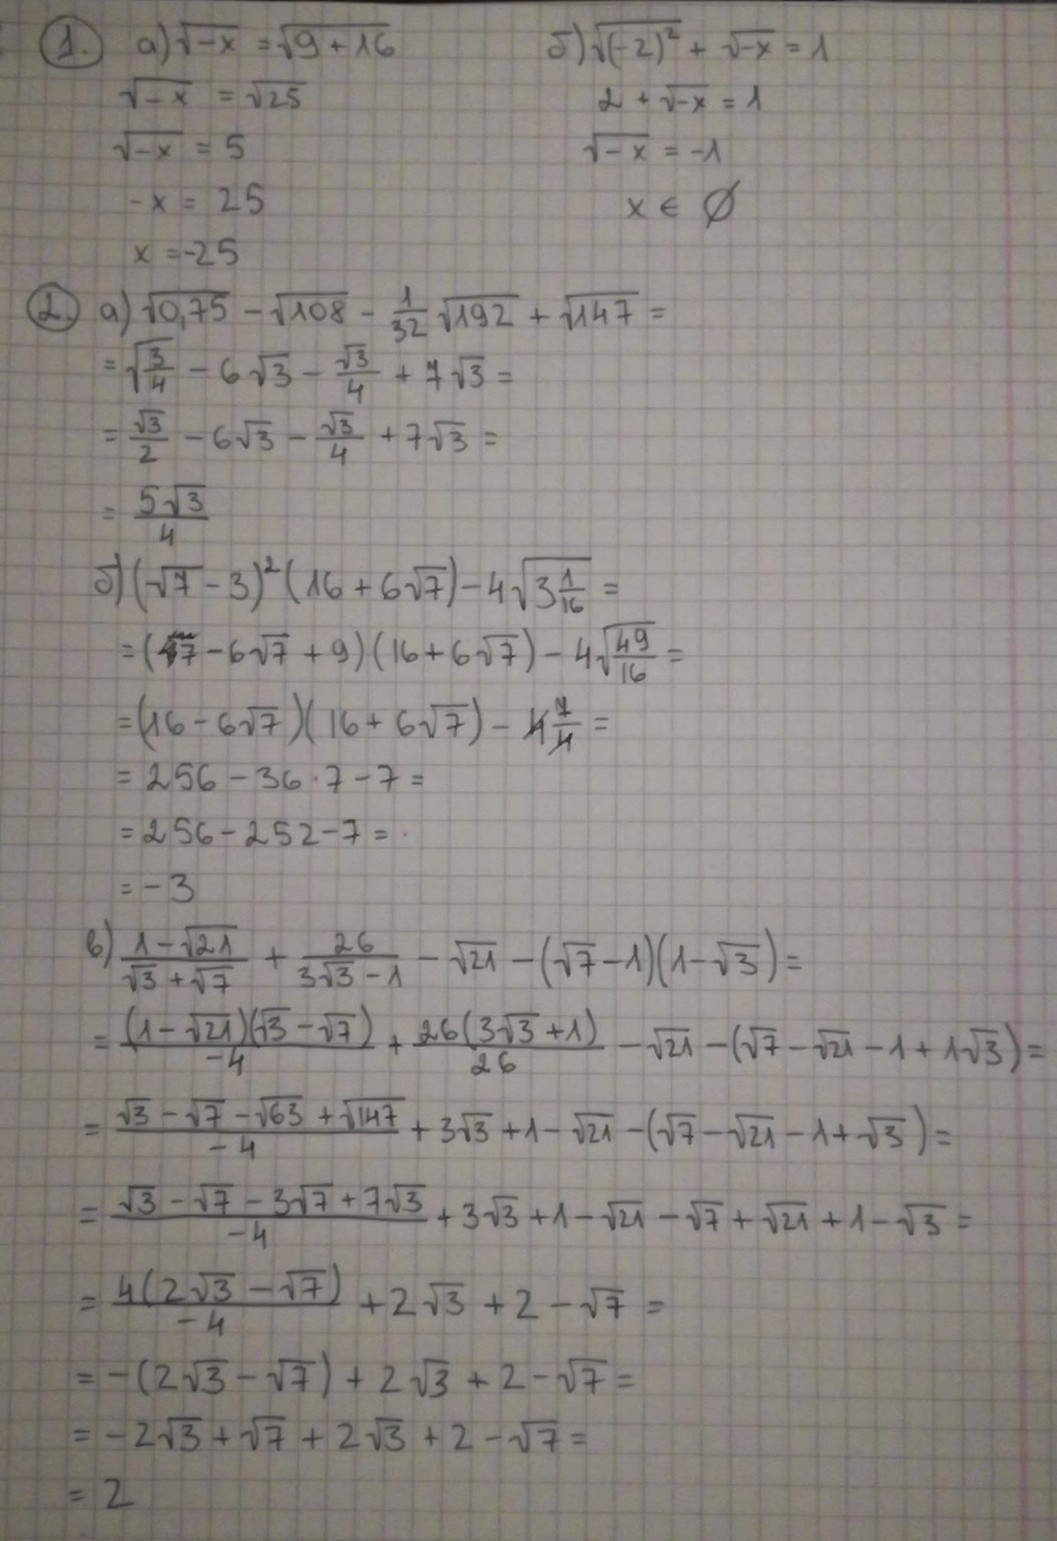 1. а) √-x = √9+16
√-x = √25
√-x = 5
-x = 25
x = -25
б) √(-2)² + √-x = 1
2 + √-x = 1
√-x = -1
x ∈ ∅
2. а) √0,75 - √108 - 1/32 √192 + √147 =
= √3/4 - 6√3 - √3/4 + 7√3 =
= √3/2 - 6√3 - √3/4 + 7√3 =
= 5√3/4
б) (√7 - 3)² (16 + 6√7) - 4√3 1/16 =
= (7 - 6√7 + 9) (16 + 6√7) - 4√49/16 =
= (16 - 6√7) (16 + 6√7) - 4 7/4 =
= 256 - 36 · 7 - 7 =
= 256 - 252 - 7 =
= -3
в) 1 - √21/√3 + √7 + 26/3√3 - 1 - √21 - (√7 - 1)(1 - √3) =
= (1 - √21)(√3 - √7)/-4 + 26(3√3 + 1)/26 - √21 - (√7 - √21 - 1 + 1√3) =
= √3 - √7 - √63 + √147/-4 + 3√3 + 1 - √21 - (√7 - √21 - 1 + √3) =
= √3 - √7 - 3√7 + 7√3/-4 + 3√3 + 1 - √21 - √7 + √21 + 1 - √3 =
= 4(2√3 - √7)/-4 + 2√3 + 2 - √7 =
= -(2√3 - √7) + 2√3 + 2 - √7 =
= -2√3 + √7 + 2√3 + 2 - √7 =
= 2